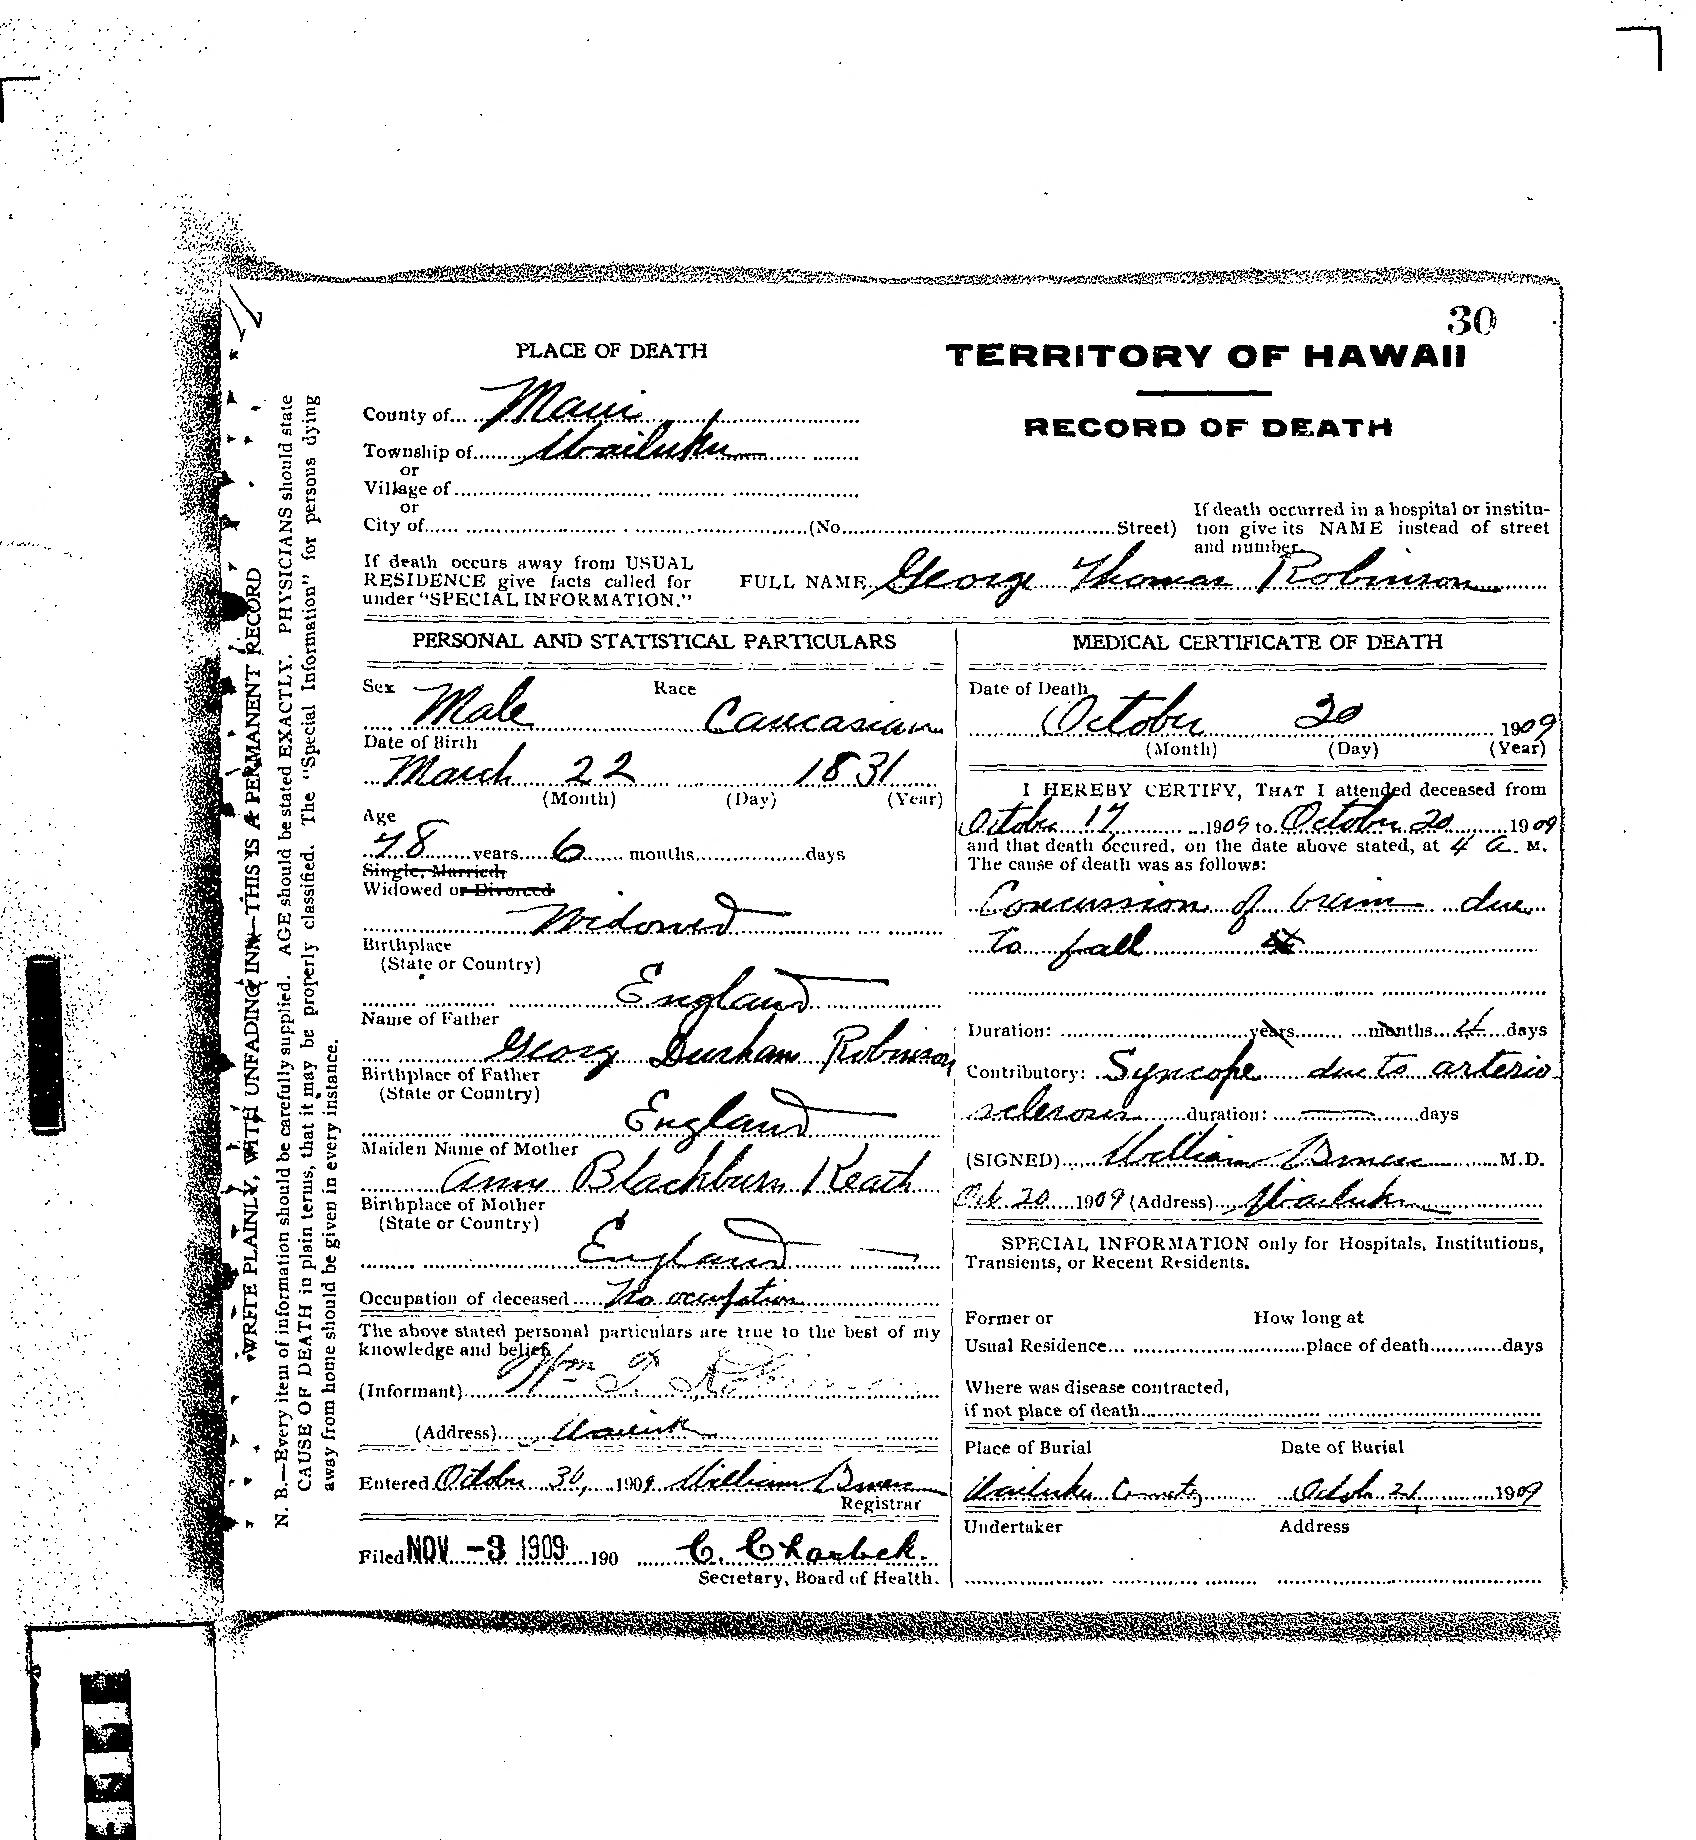 30
PLACE OF DEATH
TERRITORY OF HAWAII
RECORD OF DEATH
County of Maui
Township of Wailuku
or
Village of
or
City of (No. Street)
If death occurred in a hospital or institu-
tion give its NAME instead of street
and number.
If death occurs away from USUAL
RESIDENCE give facts called for
under "SPECIAL INFORMATION."
FULL NAME George Thomas Robinson
PERSONAL AND STATISTICAL PARTICULARS
Sex Race
Male Caucasian
Date of Birth
March 22 1831
(Month) (Day) (Year)
Age
78 years 6 months days
Single, Married,
Widowed or Divorced
Widowed
Birthplace
(State or Country)
England
Name of Father
Georg Durham Robinson
Birthplace of Father
(State or Country)
England
Maiden Name of Mother
Ann Blackburn Keath
Birthplace of Mother
(State or Country)
England
Occupation of deceased No occupation
The above stated personal particulars are true to the best of my
knowledge and belief.
(Informant) Wm T. Robinson
(Address) Wailuku
Entered October 30, 1909 William
Registrar
Filed NOV -3 1909 190 C. Charlock.
Secretary, Board of Health.
MEDICAL CERTIFICATE OF DEATH
Date of Death
October 20 1909
(Month) (Day) (Year)
I HEREBY CERTIFY, THAT I attended deceased from
October 17 1909 to October 20 1909
and that death occured, on the date above stated, at 4 a. M.
The cause of death was as follows:
Concussion of brain due
to fall
Duration: years months 4 days
Contributory: Syncope due to arterio
sclerosis duration: — days
(SIGNED) William M.D.
Oct. 20 1909 (Address) Wailuku
SPECIAL INFORMATION only for Hospitals, Institutions,
Transients, or Recent Residents.
Former or How long at
Usual Residence place of death days
Where was disease contracted,
if not place of death
Place of Burial Date of Burial
Wailuku Cemetery 21, 1909
Undertaker Address
WRITE PLAINLY, WITH UNFADING INK—THIS IS A PERMANENT RECORD
N. B.—Every item of information should be carefully supplied. AGE should be stated EXACTLY. PHYSICIANS should state
CAUSE OF DEATH in plain terms, that it may be properly classified. The "Special Information" for persons dying
away from home should be given in every instance.